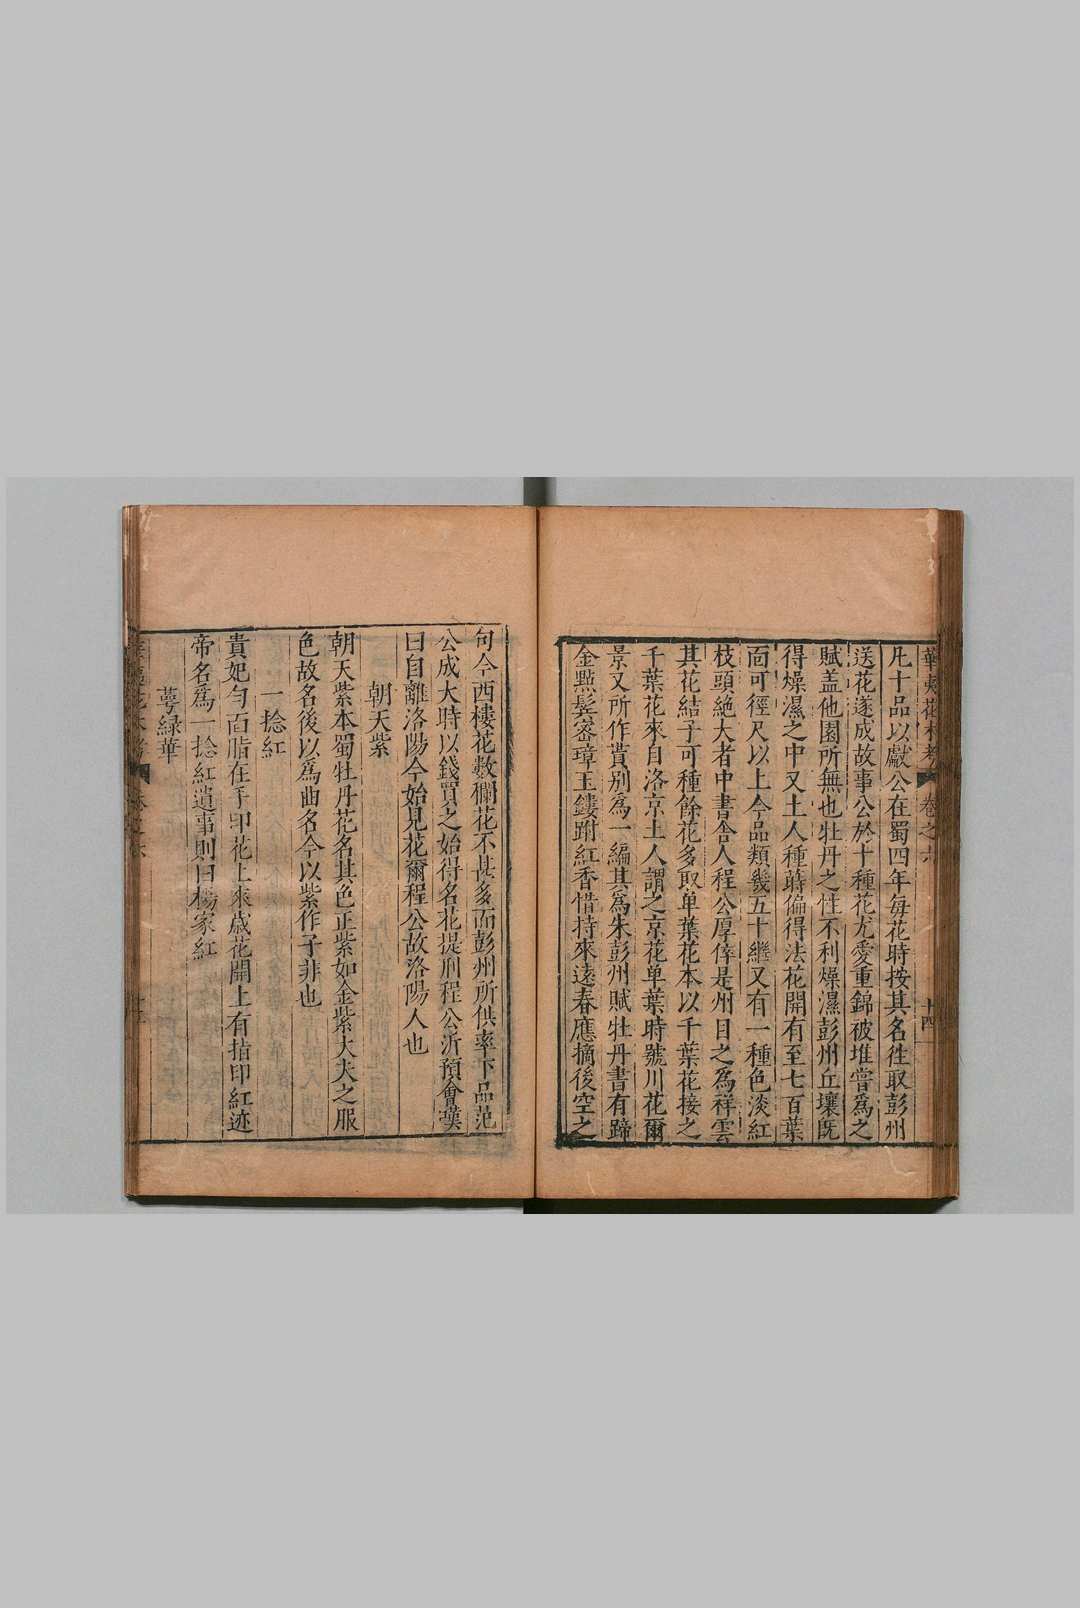 華夷花木考 卷之六 十四
凡十品以獻公在蜀四年每花時按其名徃取彭州
送花遂成故事公於十種花尤愛重錦被堆嘗爲之
賦盖他園所無也牡丹之性不利燥濕彭州丘壤旣
得燥濕之中又土人種蒔偏得法花開有至七百葉
面可徑尺以上今品類幾五十繼又有一種色淡紅
枝頭絶大者中書舎人程公厚倅是州目之爲祥雲
其花結子可種餘花多取单葉花本以千葉花接之
千葉花來自洛京土人謂之京花单葉時號川花爾
景又所作貲别爲一編其爲朱彭州賦牡丹書有蹄
金㸃鬂宻璋玉鏤跗紅香惜持來遠春應摘後空之
句今西樓花數欄花不甚多而彭州所供率下品范
公成大時以錢買之始得名花提刑程公沂預會嘆
曰自離洛陽今始見花爾程公故洛陽人也
朝天紫
朝天紫本蜀牡丹花名其色正紫如金紫大夫之服
色故名後以爲曲名今以紫作子非也
一捻紅
貴妃勻面脂在手印花上來歲花開上有指印紅迹
帝名爲一捻紅遺事則曰楊家紅
萼緑華